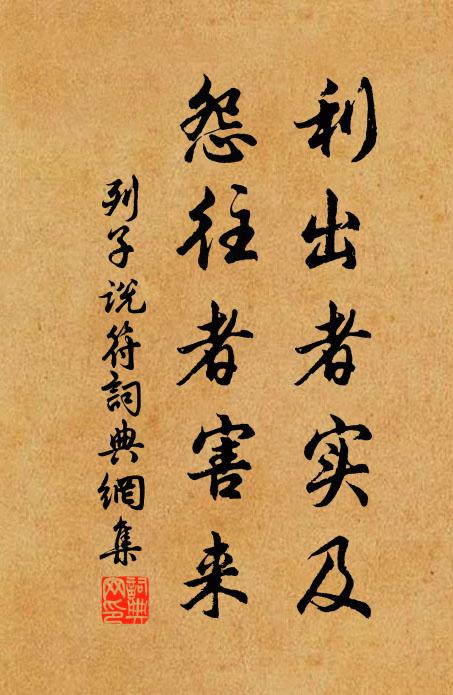 利出者实及
怨往者害来
列子说符詞典網集
詞典
网印